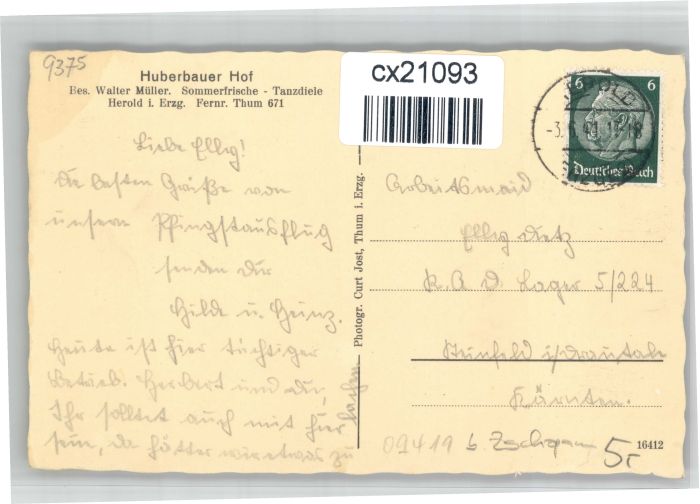 9375
Huberbauer Hof
Bes. Walter Müller. Sommerfrische - Tanzdiele
Herold i. Erzg. Fernr. Thum 671
cx21093
Liebe Elly!
Die besten Grüße von
unserem Pfingstausflug
senden Dir
Hilde u. Heinz.
Heute ist hier tüchtiger
Betrieb. Herbert und du,
Ihr solltet auch mit hier
sein, da hätten wir etwas zu
lachen
Photogr. Curt Jost, Thum i. Erzg.
6 6
Deutsches Reich
HEROLD
Arbeitsmaid
Elly Dietz
R. A. D. Lager 5/224
Steinfeld i/Drautale
Kärnten.
09419 b. Zschopau
5,-
16412